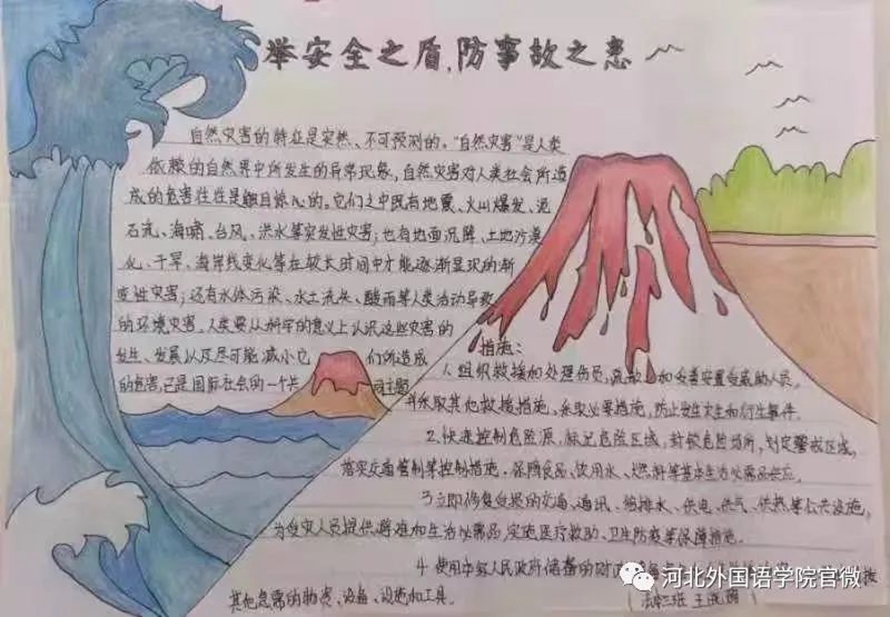 举安全之盾,防事故之患
自然灾害的特征是突然、不可预测的。"自然灾害"是人类
依赖的自然界中所发生的异常现象,自然灾害对人类社会所造
成的危害往往是触目惊心的。它们之中既有地震、火山爆发、泥
石流、海啸、台风、洪水等突发性灾害;也有地面沉降、土地沙漠
化、干旱、海岸线变化等在较长时间中才能逐渐显现的渐
变性灾害;还有水体污染、水土流失、酸雨等人类活动导致
的环境灾害。人类要从科学的意义上认识这些灾害的
发生、发展以及尽可能减小它们所造成
的危害,已是国际社会的一个共同主题
措施:
1.组织救援和处理伤员,疏散和妥善安置受威胁人员,
并采取其他救援措施、采取必要措施,防止发生次生和衍生事件。
2.快速控制危险源,标记危险区域,封锁危险场所,划定警戒区域,
落实交通管制等控制措施,保障食品、饮用水、燃料等基本生活必需品供应。
3立即修复受损的交通、通讯、给排水、供电、供气、供热等公共设施,
为受灾人员提供避难和生活必需品,实施医疗救助、卫生防疫等保障措施。
4.使用本级人民政府储备的财政
其他急需的物资、设备、设施和工具。
河北外国语学院官微